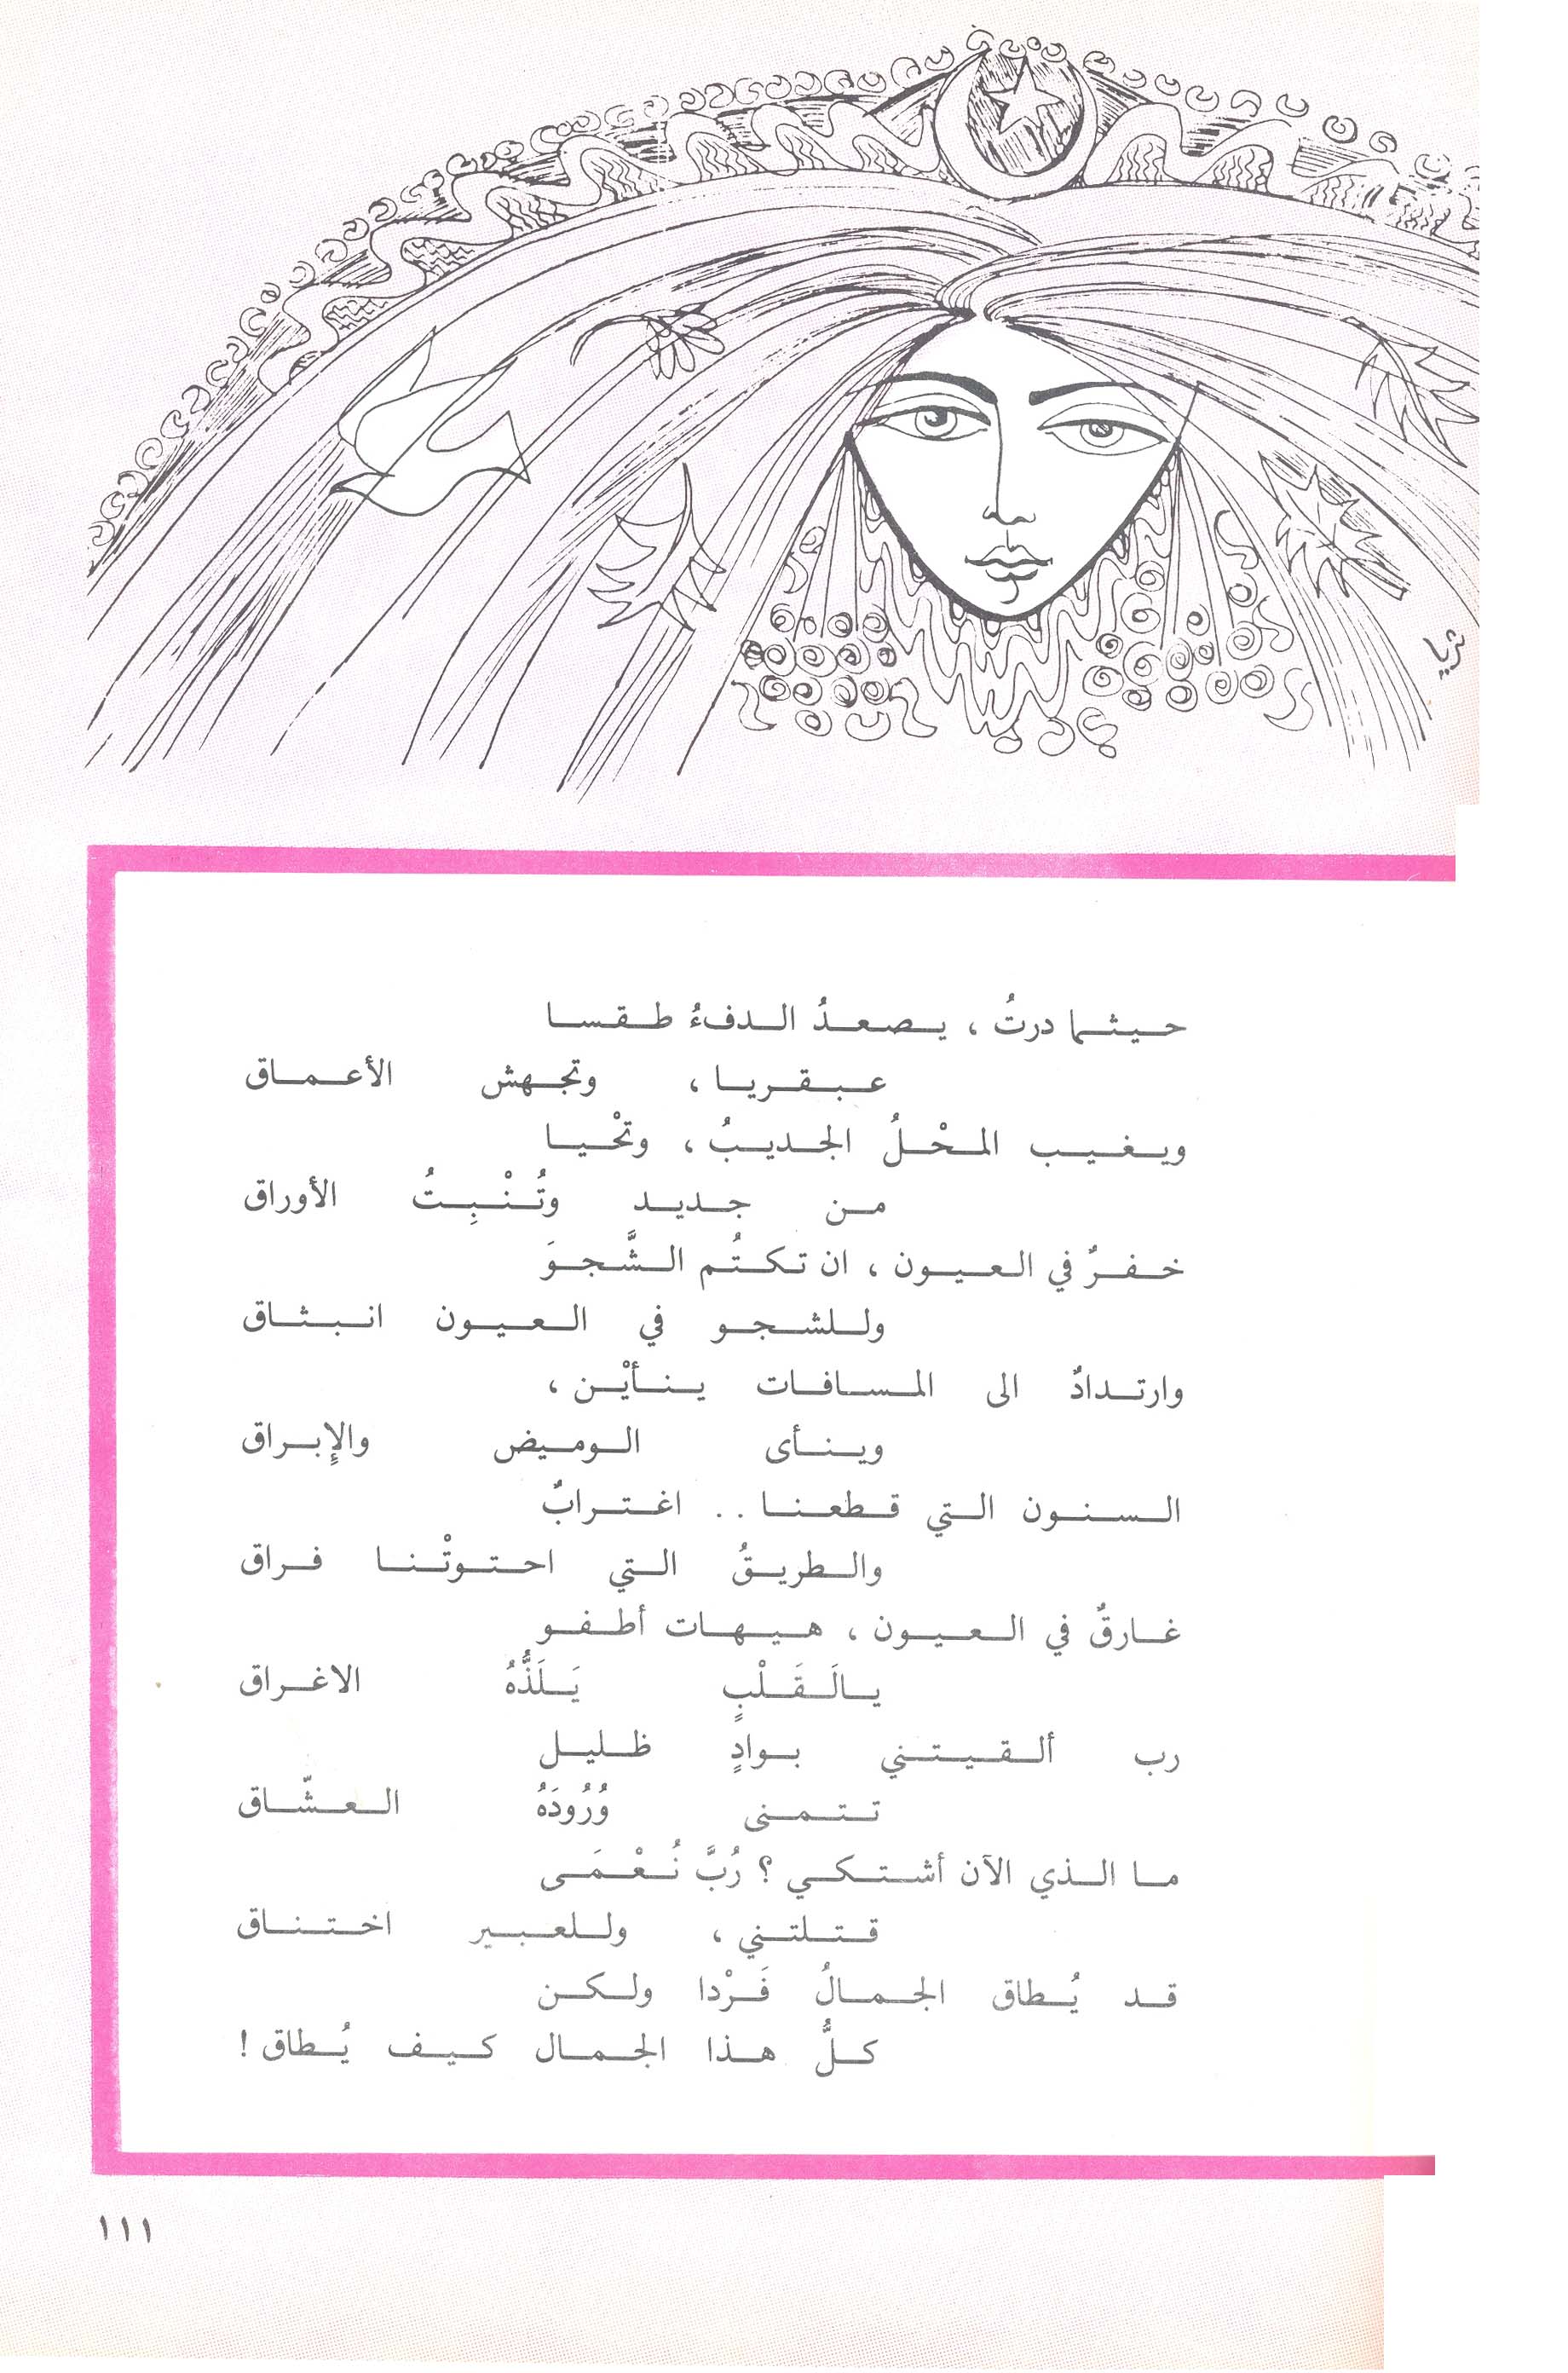 ثريا
حيثما درتُ ، يصعدُ الدفءُ طقسا
عبقريا ، وتجهش الأعماق
ويغيب المحْلُ الجديبُ ، وتحْيا
من جديد وتُنْبِتُ الأوراق
خفرٌ في العيون ، ان تكتُم الشَّجوَ
وللشجو في العيون انبثاق
وارتدادٌ الى المسافات ينأيْن ،
وينأى الوميض والإبراق
السنون التي قطعنا .. اغترابٌ
والطريقُ التي احتوتْنا فراق
غارقٌ في العيون ، هيهات أطفو
يالَقَلْبٍ يَلَذُّهُ الاغراق
رب ألقيتني بوادٍ ظليل
تتمنى وُرُودَهُ العشّاق
ما الذي الآن أشتكي ؟ رُبَّ نُعْمَى
قتلتني ، وللعبير اختناق
قد يُطاق الجمالُ فَرْدا ولكن
كلُّ هذا الجمال كيف يُطاق !
١١١